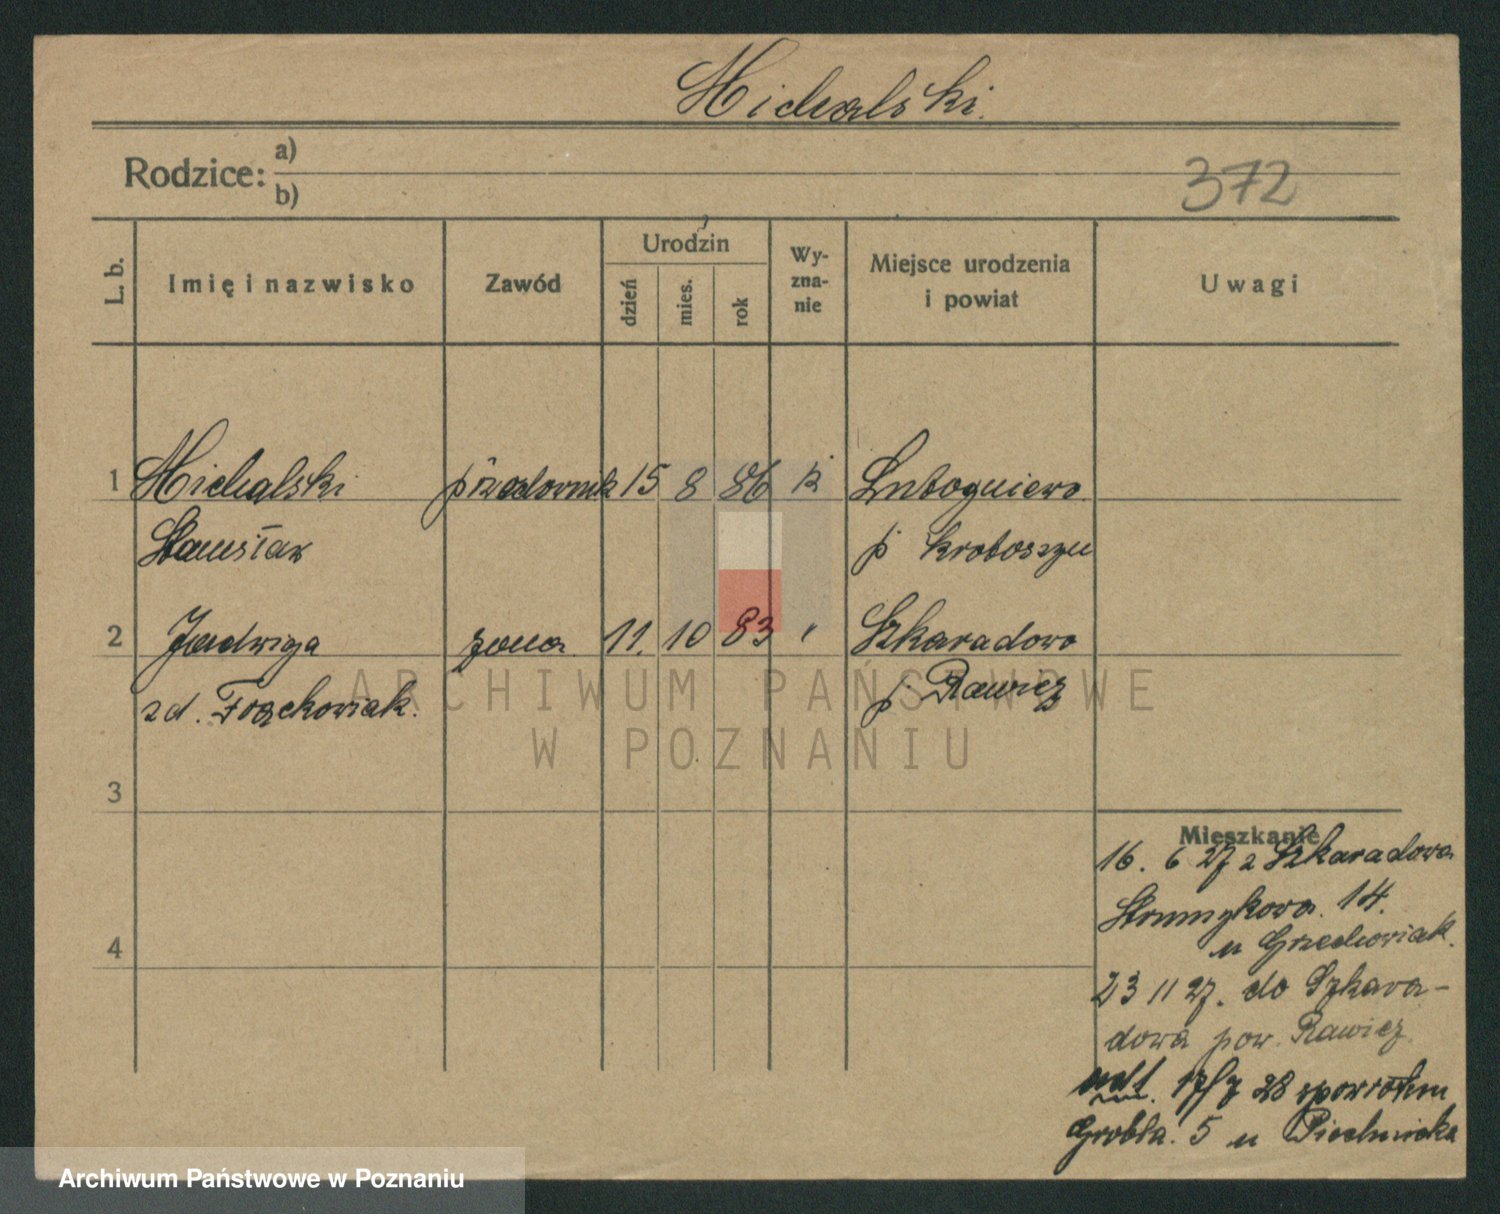 Michalski.
Rodzice: a)
b)
372
L. b.
Imię i nazwisko
Zawód
Urodzin
dzień
mies.
rok
Wy-
zna-
nie
Miejsce urodzenia
i powiat
Uwagi
1 Michalski 15 8 86 k
Stanisław
p
2 Jadwiga żona 11. 10 83 " Szkaradowo
zd. Frąckowiak. p. Rawicz
ARCHIWUM PAŃSTWOWE
W POZNANIU
3
4
Mieszkanie
16. 6 27 z Szkaradowa
Strumykowa. 14.
u Grzechowiak.
23 11 27. do Szkara-
dowa pow. Rawicz
17/7 28 spowrotem
Grobla. 5 u
Archiwum Państwowe w Poznaniu